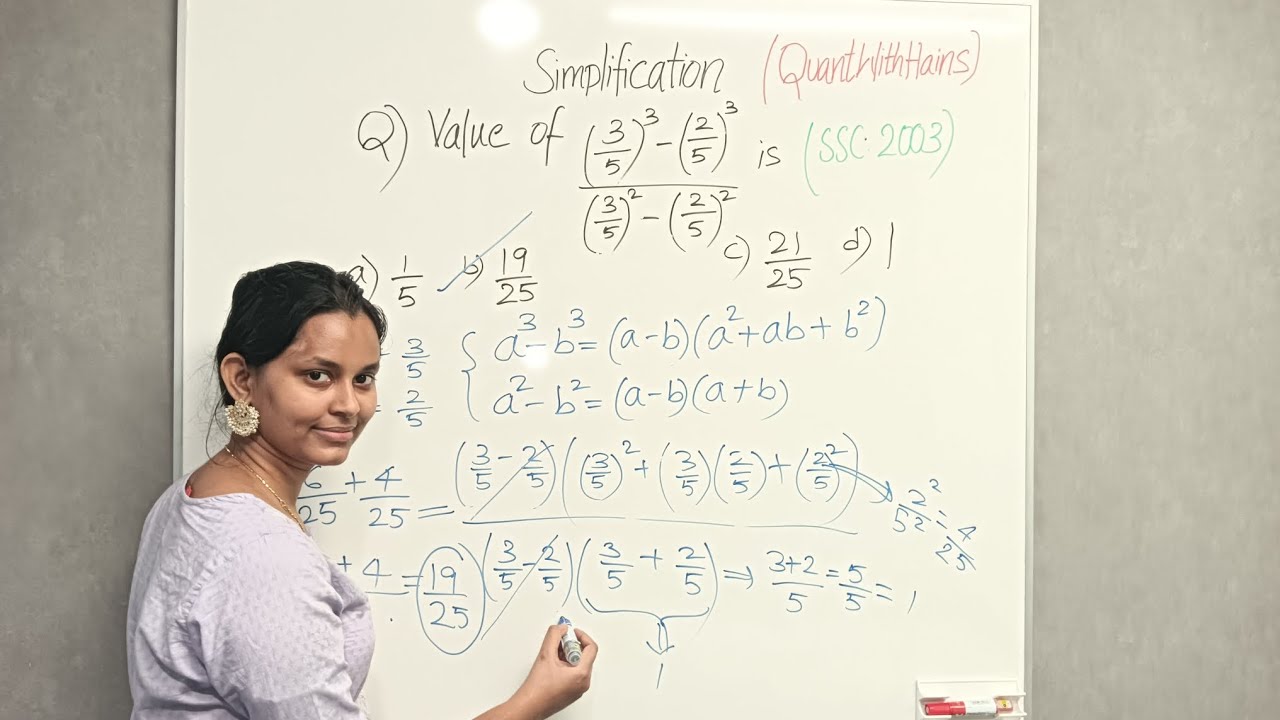 Simplification (QuantWithHains)
Q) Value of ((3/5)³ - (2/5)³) / ((3/5)² - (2/5)²) is (SSC: 2003)
a) 1/5 b) 19/25 c) 21/25 d) 1
3/5 { a³ - b³ = (a-b)(a² + ab + b²)
= 2/5 a² - b² = (a-b)(a+b)
6/25 + 4/25 = (3/5 - 2/5)((3/5)² + (3/5)(2/5) + (2/5)²) 2²/5² = 4/25
+ 4 = 19/25 (3/5 - 2/5)(3/5 + 2/5) ⇒ 3+2/5 = 5/5 = 1
1